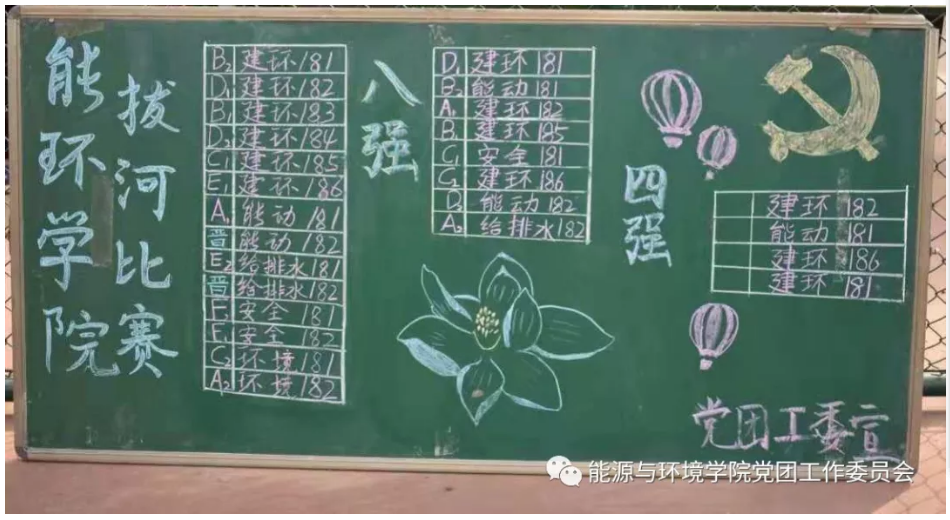 能环学院
拔河比赛
B₂ 建环181
D₁ 建环182
B₁ 建环183
D₂ 建环184
C₁ 建环185
E₁ 建环186
A₁ 能动181
晋 能动182
E₂ 给排水181
晋 给排水182
F₂ 安全181
F₁ 安全182
C₂ 环境181
A₂ 环境182
八强
D₁ 建环181
B₂ 能动181
A₁ 建环182
B₁ 建环185
C₁ 安全181
C₂ 建环186
D₂ 能动182
A₂ 给排水182
四强
建环182
能动181
建环186
建环181
党团工委宣
能源与环境学院党团工作委员会